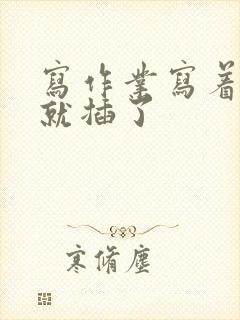 寫作業寫着
就插了
寒脩塵